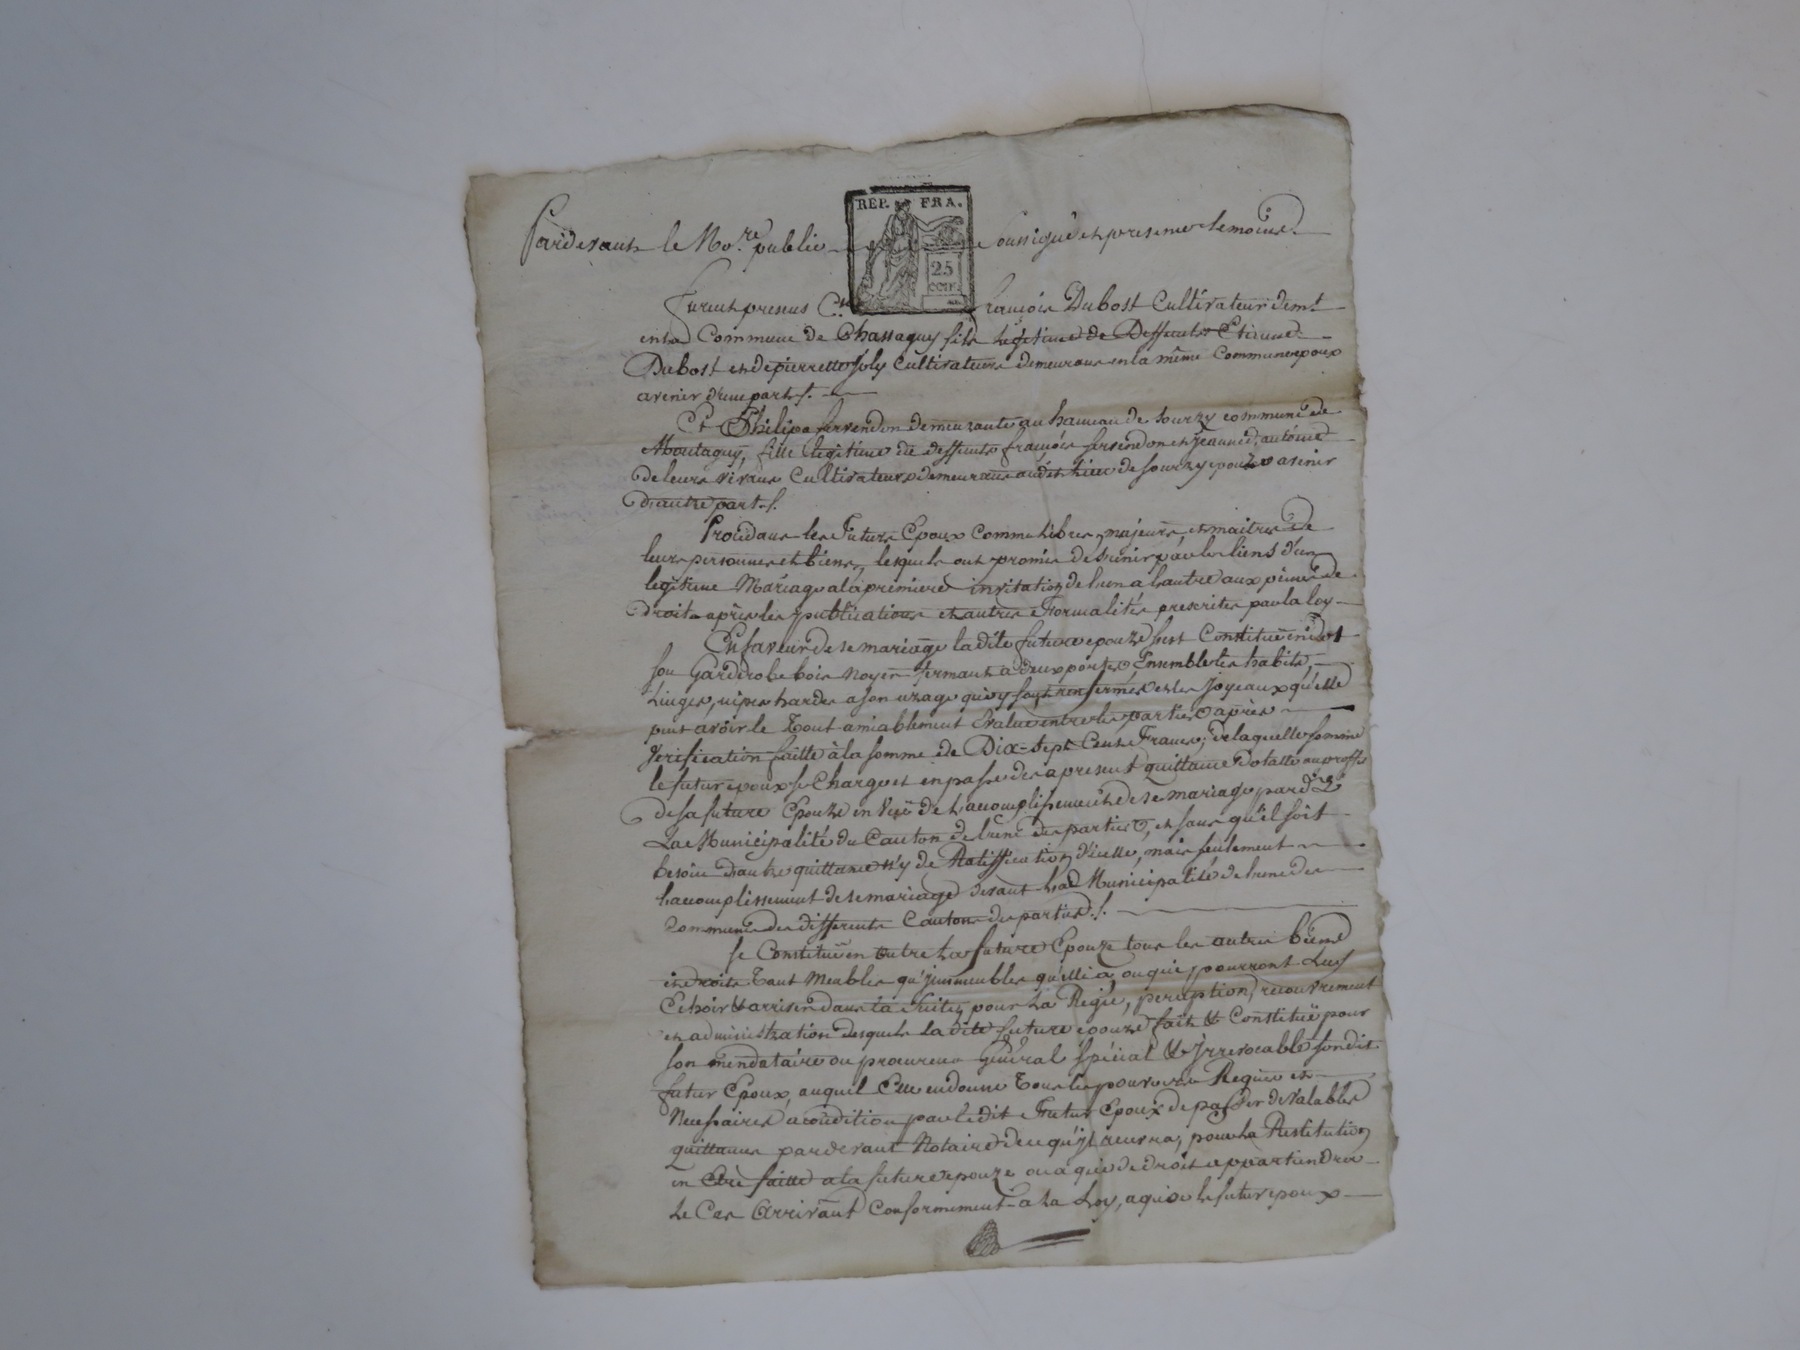 REP. FRA.
25
CENT.
Pardevant le No.re public Soussigné et presents temoins
furent presens C.en françois Dubost Cultivateur demt
en la Commune de Chassagny fils legitime de Deffunts Etienne
Dubost et de pierrette joly Cultivateurs demeurans en la même Commune epoux
avenir d'une part /.
Et Philipa fervendon demeurante au hameau de Sourzy commune de
Montagny, fille legitime de deffunts françois fervendon et jeanne antoine
de leurs vivans Cultivateurs demeurans audit lieu de sourzy epouze avenir
d'autre part /.
Procedans les Futurs Epoux Comme Libres, majeurs, et maitres de
leurs personnes et biens, lesquels ont promis de s'unir par les liens d'un
legitime Mariage a la premiere invitation de l'un a l'autre aux peines de
droit apres les publications et autres Formalités prescrites par la loy
En faveur de ce mariage la dite future epouze s'est Constitué en dot
son Garderobe bois noyer fermant a deux portes, Ensemble les habits,
Linges, nipes hardes a son uzage qui y sont renfermés et les Joyeaux qu'elle
peut avoir le Tout amiablement Evalué entre les parties après
Verification faitte à la somme de Dix-sept Cents Francs, de laquelle somme
le futur epoux se Charge et en passe des apresent quittance Dotalle au proffit
de sa future Epouze en Vuë de L'accomplissement de ce mariage par d.t
La Municipalité du Canton de l'une des parties, et sans qu'il soit
besoin d'autre quittance n'y de Ratiffication d'icelle, mais seulement
L'accomplissement de ce mariage devant La Municipalité de l'une des
Communes des differents Cantons des parties /.
se Constituë en Outre La future Epouze tous les autres biens
et droits Tant Meubles qu'jmmeubles qu'elle a, ou qui pourront Luy
Echoir & arriver dans la suite, pour La Regie, perception, recouvrement
et administration desquels la dite future epouze fait & Constituë pour
son mendataire ou procureur Général Spécial & Irrevocable son dit
futur Epoux, auquel Elle en donne Tous les pouvoirs Requis et
Necessaires a condition par le dit Futur Epoux de passer de Valables
quittances pardevant Notaire de ce qu'jl recevra, pour La Restitution
en Etre faitte a la future epouze ou a qui de droit appartiendra
Le Cas Arrivant Conformement a La Loy, a quoi le futur epoux